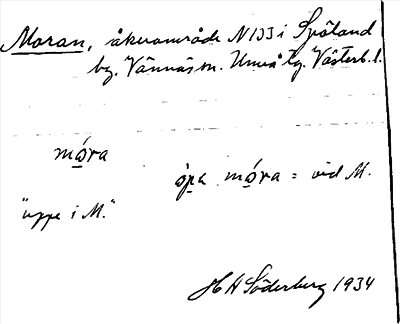 Moran, åkerområde N 133 i Spöland
by. Vännäs sn. Umeå tg. Västerb. l.
mǫ́ra
ǫ́pa mǫ́ra = vid M.
"uppe i M."
H H Söderberg 1934